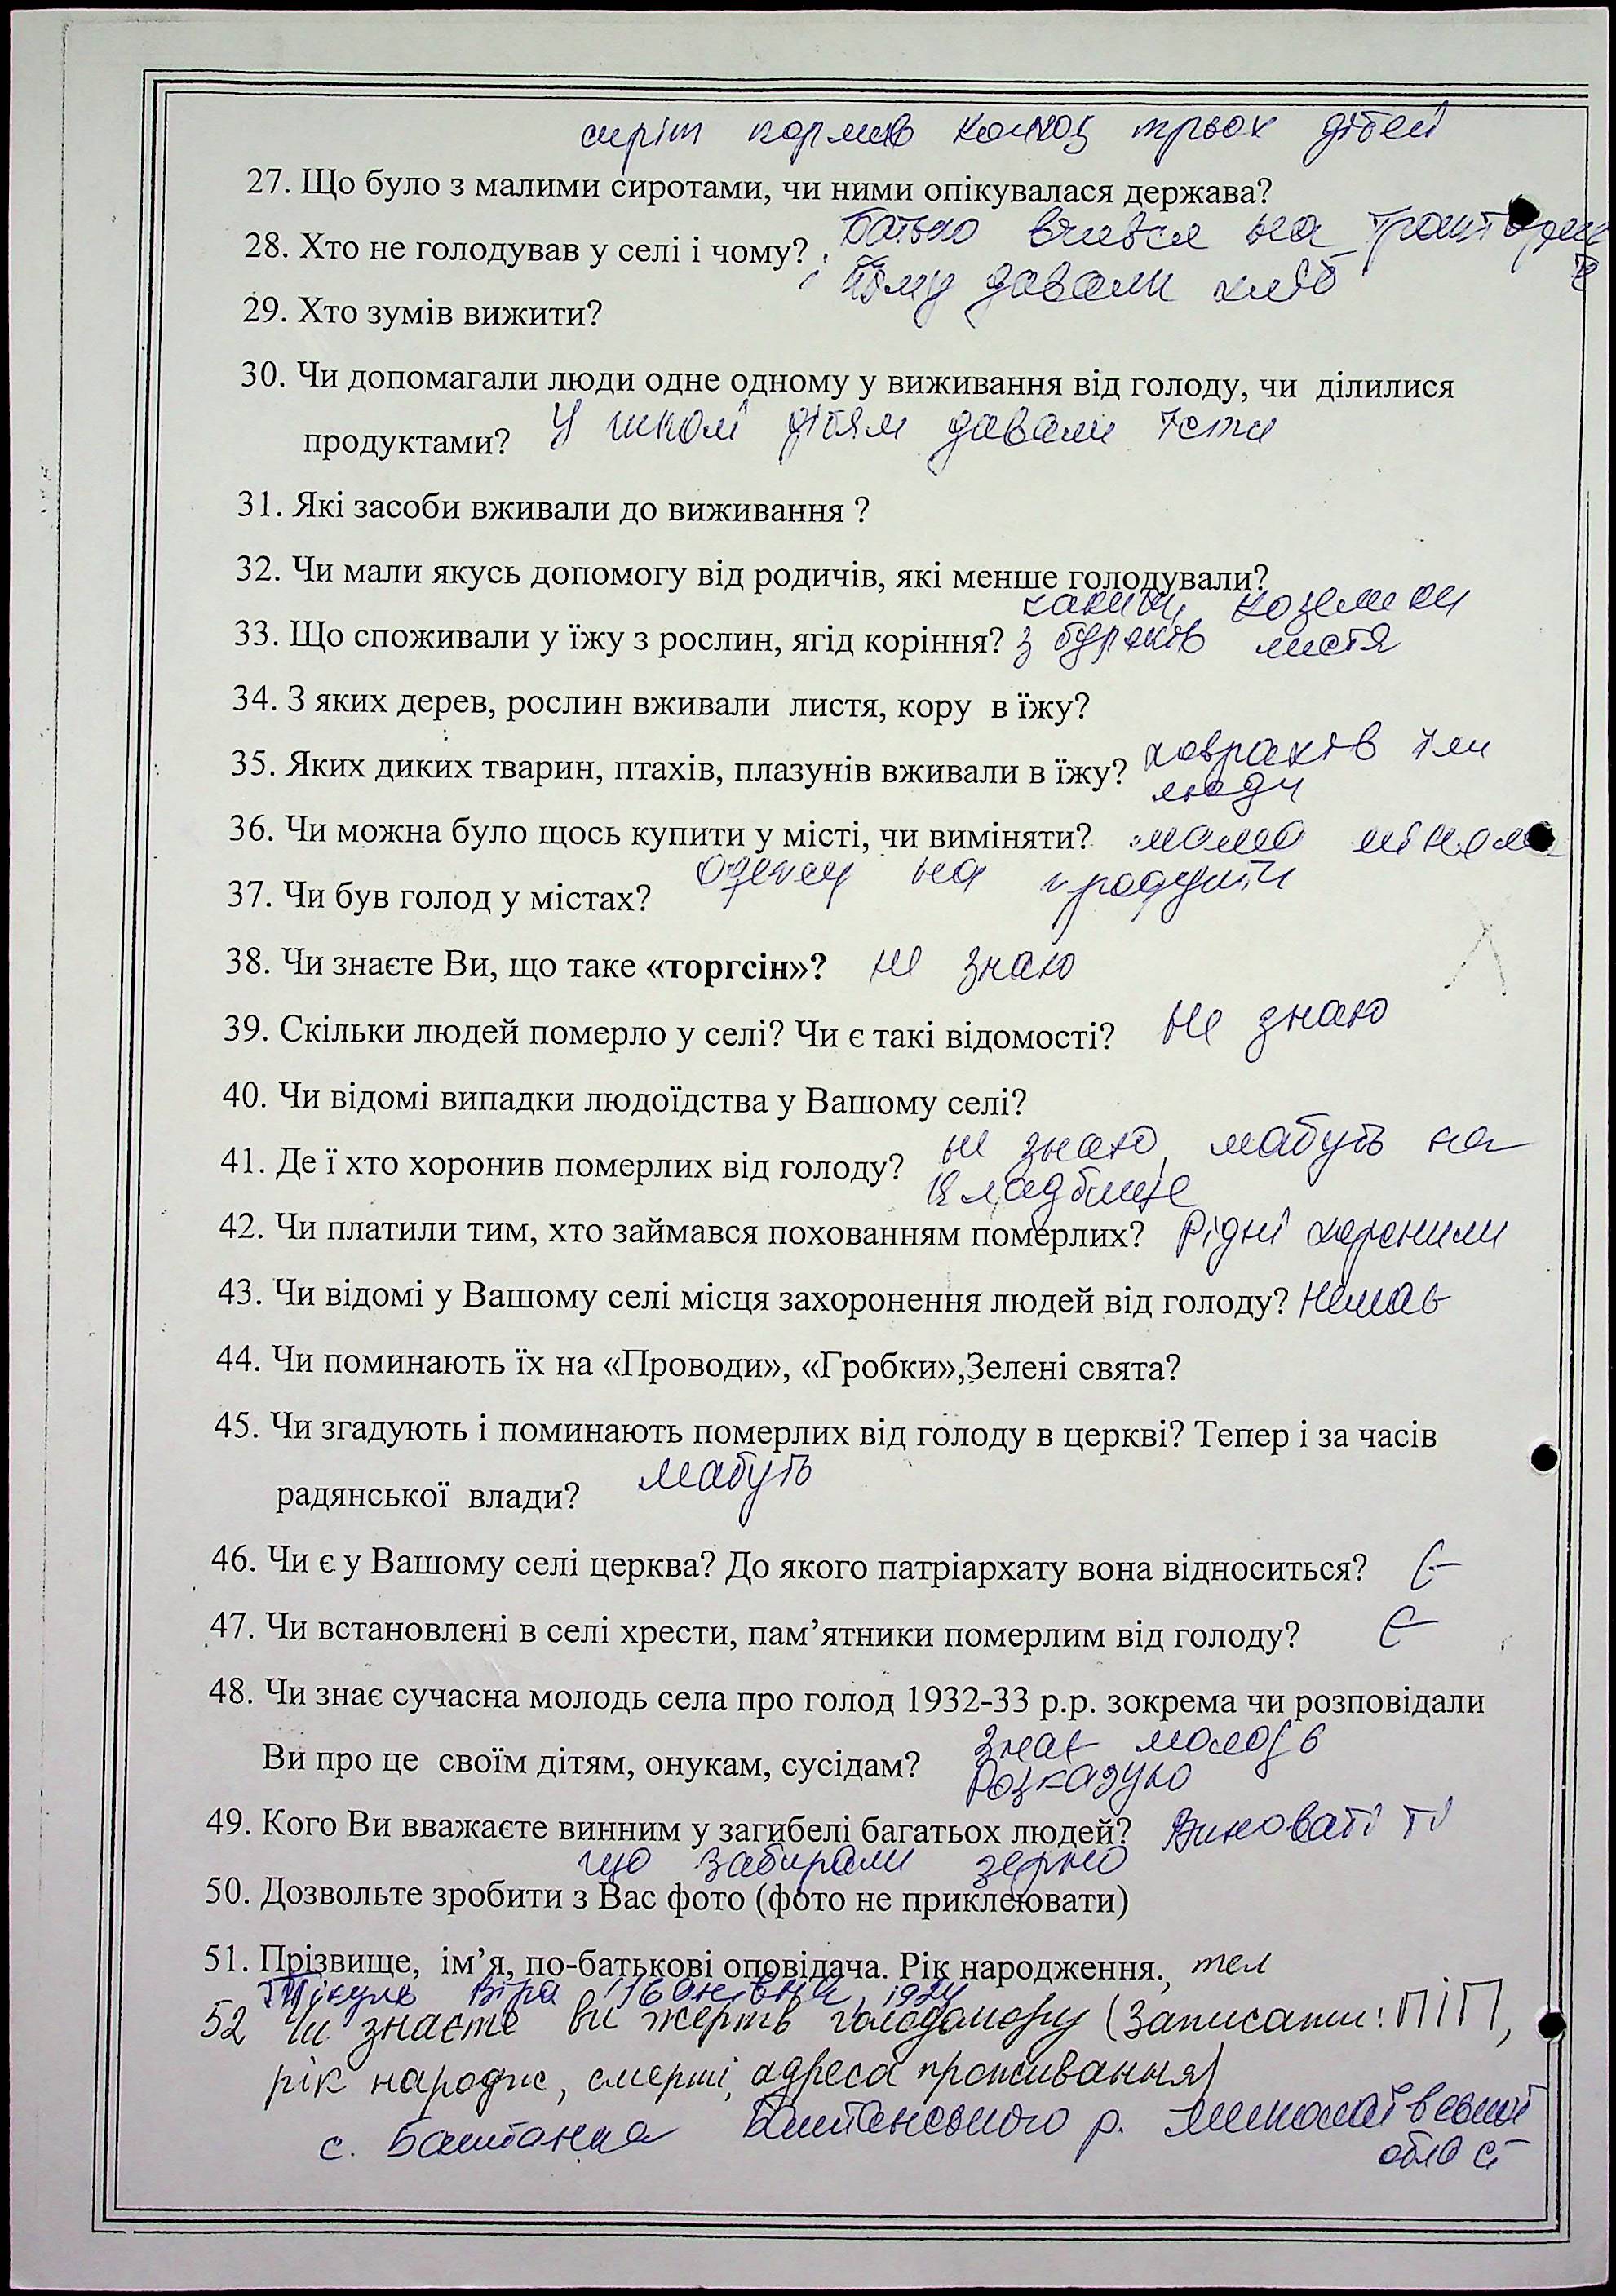 сиріт кормив колхоз трьох дітей
27. Що було з малими сиротами, чи ними опікувалася держава?
28. Хто не голодував у селі і чому? Батько вчився на
йому давали хліб
29. Хто зумів вижити?
30. Чи допомагали люди одне одному у виживання від голоду, чи ділилися
продуктами? У школі дітям давали їсти
31. Які засоби вживали до виживання ?
32. Чи мали якусь допомогу від родичів, які менше голодували?
козелики
33. Що споживали у їжу з рослин, ягід коріння? з буряків листя
34. З яких дерев, рослин вживали листя, кору в їжу?
35. Яких диких тварин, птахів, плазунів вживали в їжу? ховрахів їли
люди
36. Чи можна було щось купити у місті, чи виміняти? мама міняла
одежу на продукти
37. Чи був голод у містах?
38. Чи знаєте Ви, що таке «торгсін»? не знаю
39. Скільки людей померло у селі? Чи є такі відомості? Не знаю
40. Чи відомі випадки людоїдства у Вашому селі?
41. Де ї хто хоронив померлих від голоду? не знаю, мабуть на
кладбище
42. Чи платили тим, хто займався похованням померлих? Рідні хоронили
43. Чи відомі у Вашому селі місця захоронення людей від голоду? Немає
44. Чи поминають їх на «Проводи», «Гробки»,Зелені свята?
45. Чи згадують і поминають померлих від голоду в церкві? Тепер і за часів
радянської влади? Мабуть
46. Чи є у Вашому селі церква? До якого патріархату вона відноситься? Є
47. Чи встановлені в селі хрести, пам’ятники померлим від голоду? Є
48. Чи знає сучасна молодь села про голод 1932-33 р.р. зокрема чи розповідали
Ви про це своїм дітям, онукам, сусідам? Знає молодь
Розказую
49. Кого Ви вважаєте винним у загибелі багатьох людей? Виноваті ті
що забирали зерно
50. Дозвольте зробити з Вас фото (фото не приклеювати)
51. Прізвище, ім’я, по-батькові оповідача. Рік народження., тел
Віра Іванівна, 1924
52 Чи знаєте ви жертв голодомору (Записати: ПІП,
рік народж, смерті, адреса проживання)
с. Баштанка Баштанського р. Миколаївської
област